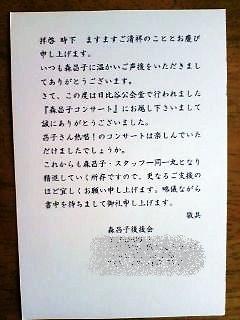 拝啓 時下 ますますご清祥のこととお慶び
申し上げます。
いつも森昌子に温かいご声援をいただきまし
てありがとうございます。
さて、この度は日比谷公会堂で行われました
『森昌子コンサート』にお越し下さいまして
誠にありがとうございました。
昌子さん熱唱!のコンサートは楽しんでいた
だけましたでしょうか。
これからも森昌子・スタッフ一同一丸となり
精進していく所存ですので、更なるご支援の
ほど宜しくお願い申し上げます。略儀ながら
書中を持ちまして御礼申し上げます。
敬具
森昌子後援会